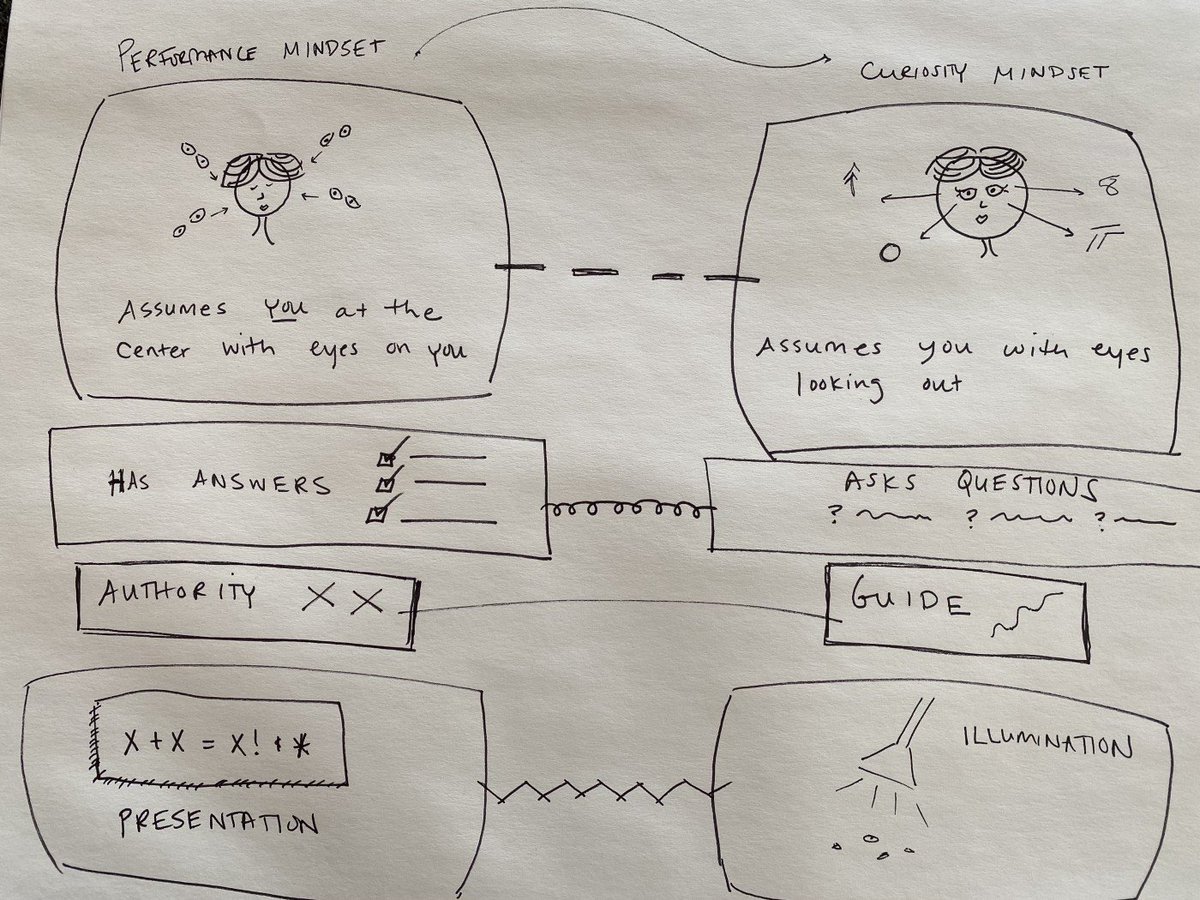 PERFORMANCE MINDSET
CURIOSITY MINDSET
ASSUMES YOU at the
center with eyes on you
ASSUMES you with eyes
looking out
HAS ANSWERS
ASKS QUESTIONS
? ? ?
AUTHORITY X X
GUIDE
X + X = X! & *
PRESENTATION
ILLUMINATION